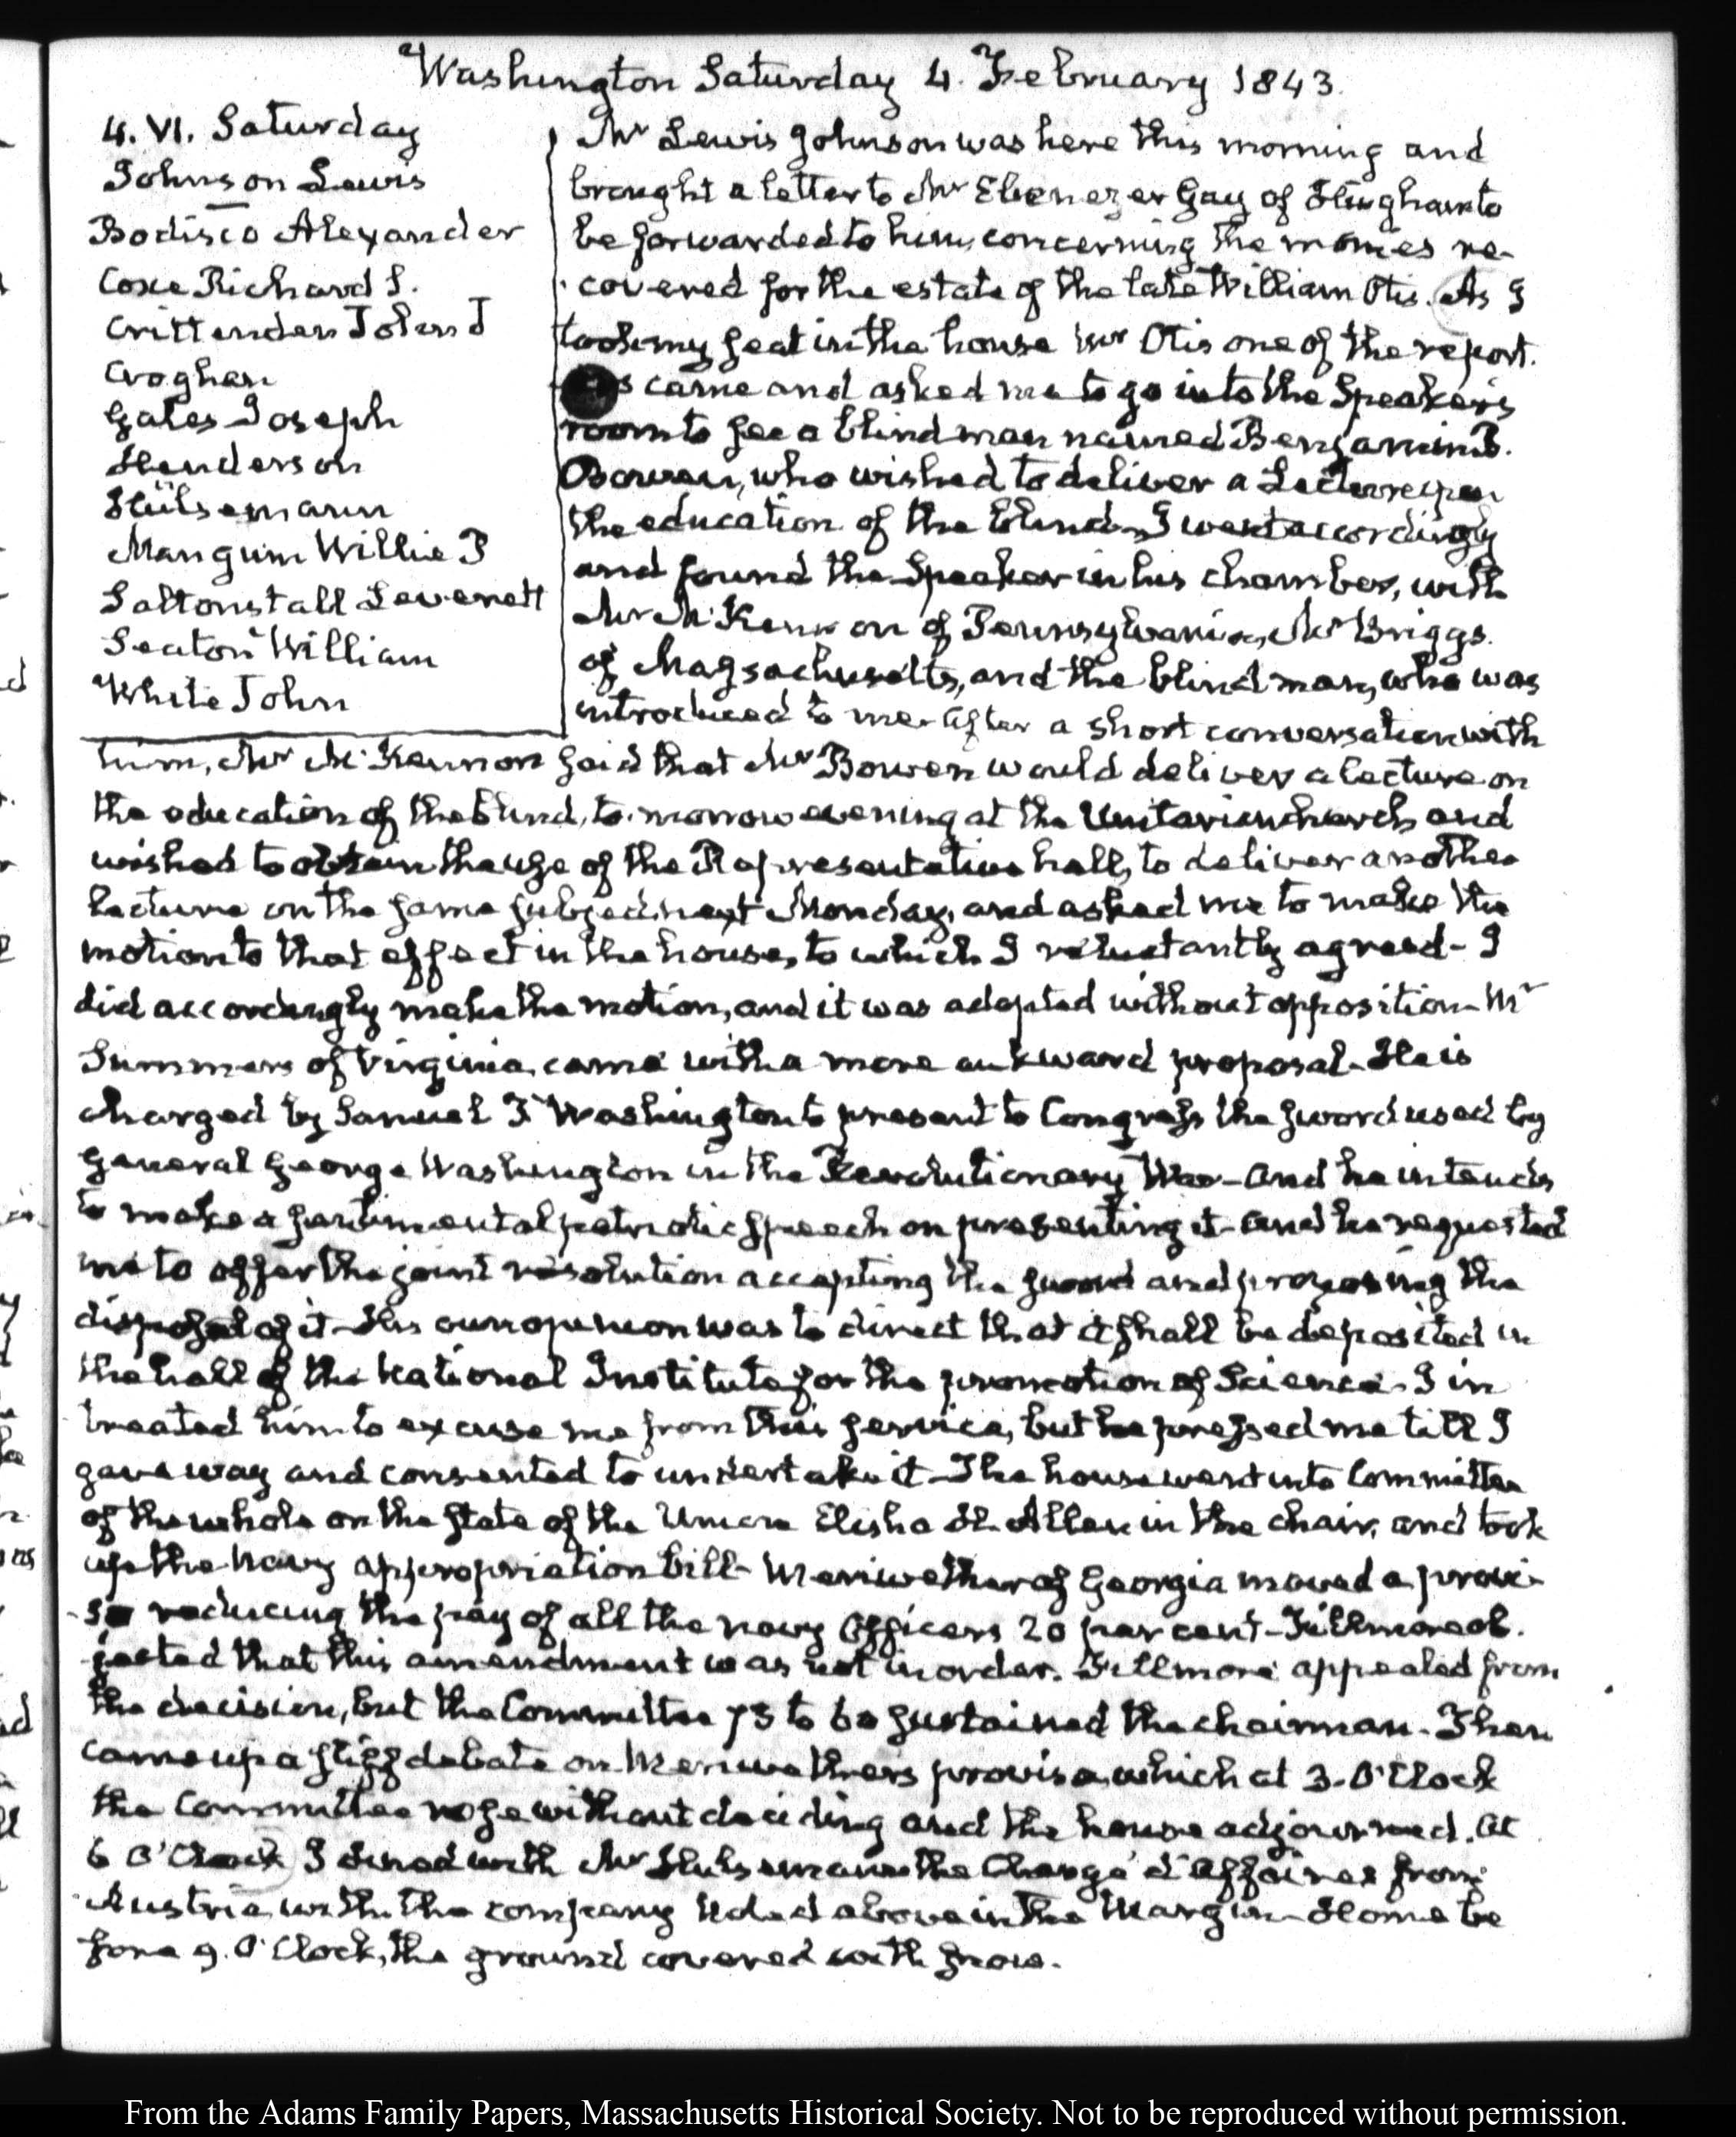 Washington Saturday 4. February 1843.
4. VI. Saturday
Johnson Lewis
Bodisco Alexander
Coxe Richard S.
Crittenden John J
Croghan
Gales Joseph
Henderson
Hülsemann
Mangum Willie P
Saltonstall Leverett
Seaton William
White John
Mr Lewis Johnson was here this morning and
brought a letter to Mr Ebenezer Gay of Hingham to
be forwarded to him, concerning the monies re-
covered for the estate of the late William Otis. As I
took my seat in the house Mr Otis one of the report.
s came and asked me to go into the Speaker's
room to see a blind man named Benjamin B.
Bowen, who wished to deliver a Lecture upon
the education of the blind. I went accordingly
and found the Speaker in his chamber, with
Mr McKennon of Pennsylvania, Mr Briggs.
of Massachusetts, and the blind man, who was
introduced to me. After a short conversation with
him, Mr McKennon said that Mr Bowen would deliver a lecture on
the education of the blind, to-morrow evening at the Unitarian church and
wished to obtain the use of the Representative hall, to deliver another
lecture on the same subject, next Monday, and asked me to make the
motion to that effect in the house, to which I reluctantly agreed - I
did accordingly make the motion, and it was adopted without opposition - Mr
Summers of Virginia, came with a more aukward proposal - He is
charged by Samuel T Washington to present to Congress the sword used by
General George Washington in the Revolutionary War - and he intends
to make a sentimental patriotic speech on presenting it - and he requested
me to offer the joint resolution accepting the sword and proposing the
disposal of it - His own opinion was to direct that it shall be deposited in
the hall of the National Institute for the promotion of Science - I in
treated him to excuse me from this service, but he pressed me till I
gave way and consented to undertake it - The house went into Committee
of the whole on the State of the Union Elisha H. Allen in the chair, and took
up the Navy appropriation bill - Meriwether of Georgia moved a provi-
so reducing the pay of all the navy Officers 20 per cent - Fillmore ob.
jected that this amendment was not in order. Fillmore appealed from
the decision, but the Committee 73 to 60 sustained the chairman. Then
came up a stiff debate on Meriwether's proviso, which at 3. O'Clock
the Committee rose without deciding and the house adjourned. At
6 O'Clock I dined with Mr Hulsemann the Chargé d'Affaires from
Austria, with the company noted above in the Margin - Home be
fore 9. O'Clock, the ground covered with snow.
From the Adams Family Papers, Massachusetts Historical Society. Not to be reproduced without permission.